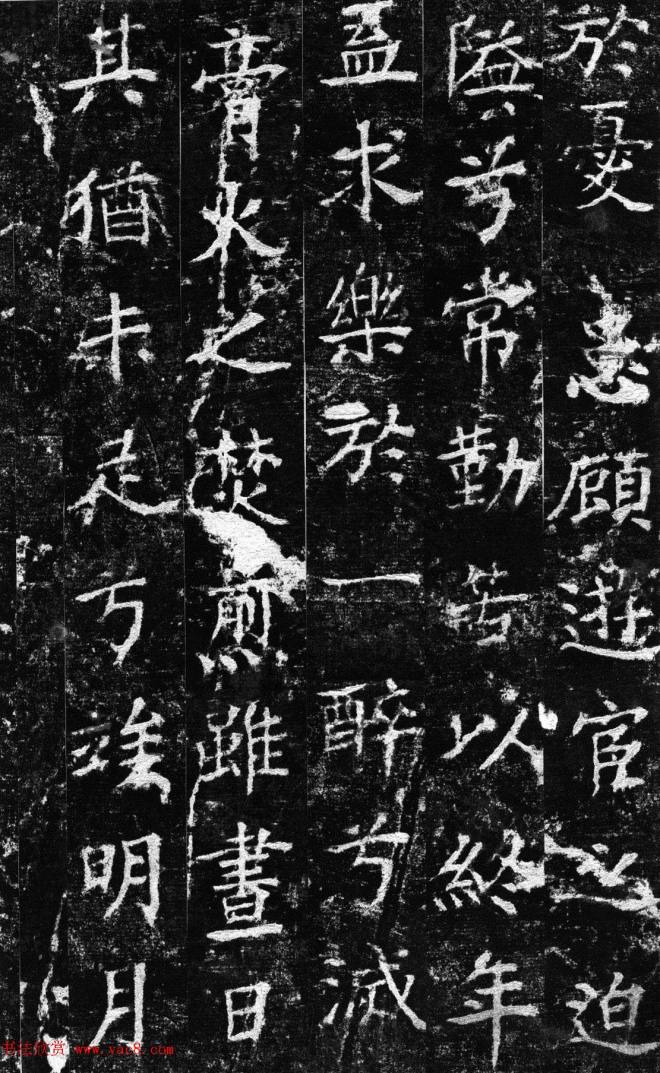 於憂患顧遊宦之迫
隘兮常勤苦以終年
盍求樂於一醉兮滅
膏火之焚煎雖晝日
其猶未足兮竢明月
书法欣赏 www.yac8.com